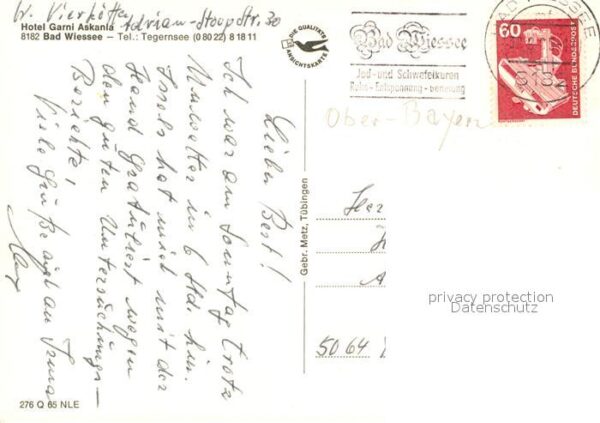 W. Vierkötter
Adrian-Stoop Str. 30
Hotel Garni Askania
8182 Bad Wiessee – Tel.: Tegernsee (0 80 22) 8 18 11
DIE QUALITÄTS
ANSICHTSKARTE
Bad Wiessee
Jod- und Schwefelkuren
Ruhe - Entspannung - Genesung
BAD WIESSEE
8182
60
DEUTSCHE BUNDESPOST
Ober-Bayern
Lieber Bert!
Ich war am Sonntag trotz
Unwetter in 6 Std. hier.
hat mich mit der
Hand Gratuliert wegen
den guten Untersuchungs-
Berichte,
Viele Grüße auch an
Gebr. Metz, Tübingen
Her
5064
privacy protection
Datenschutz
276 Q 65 NLE